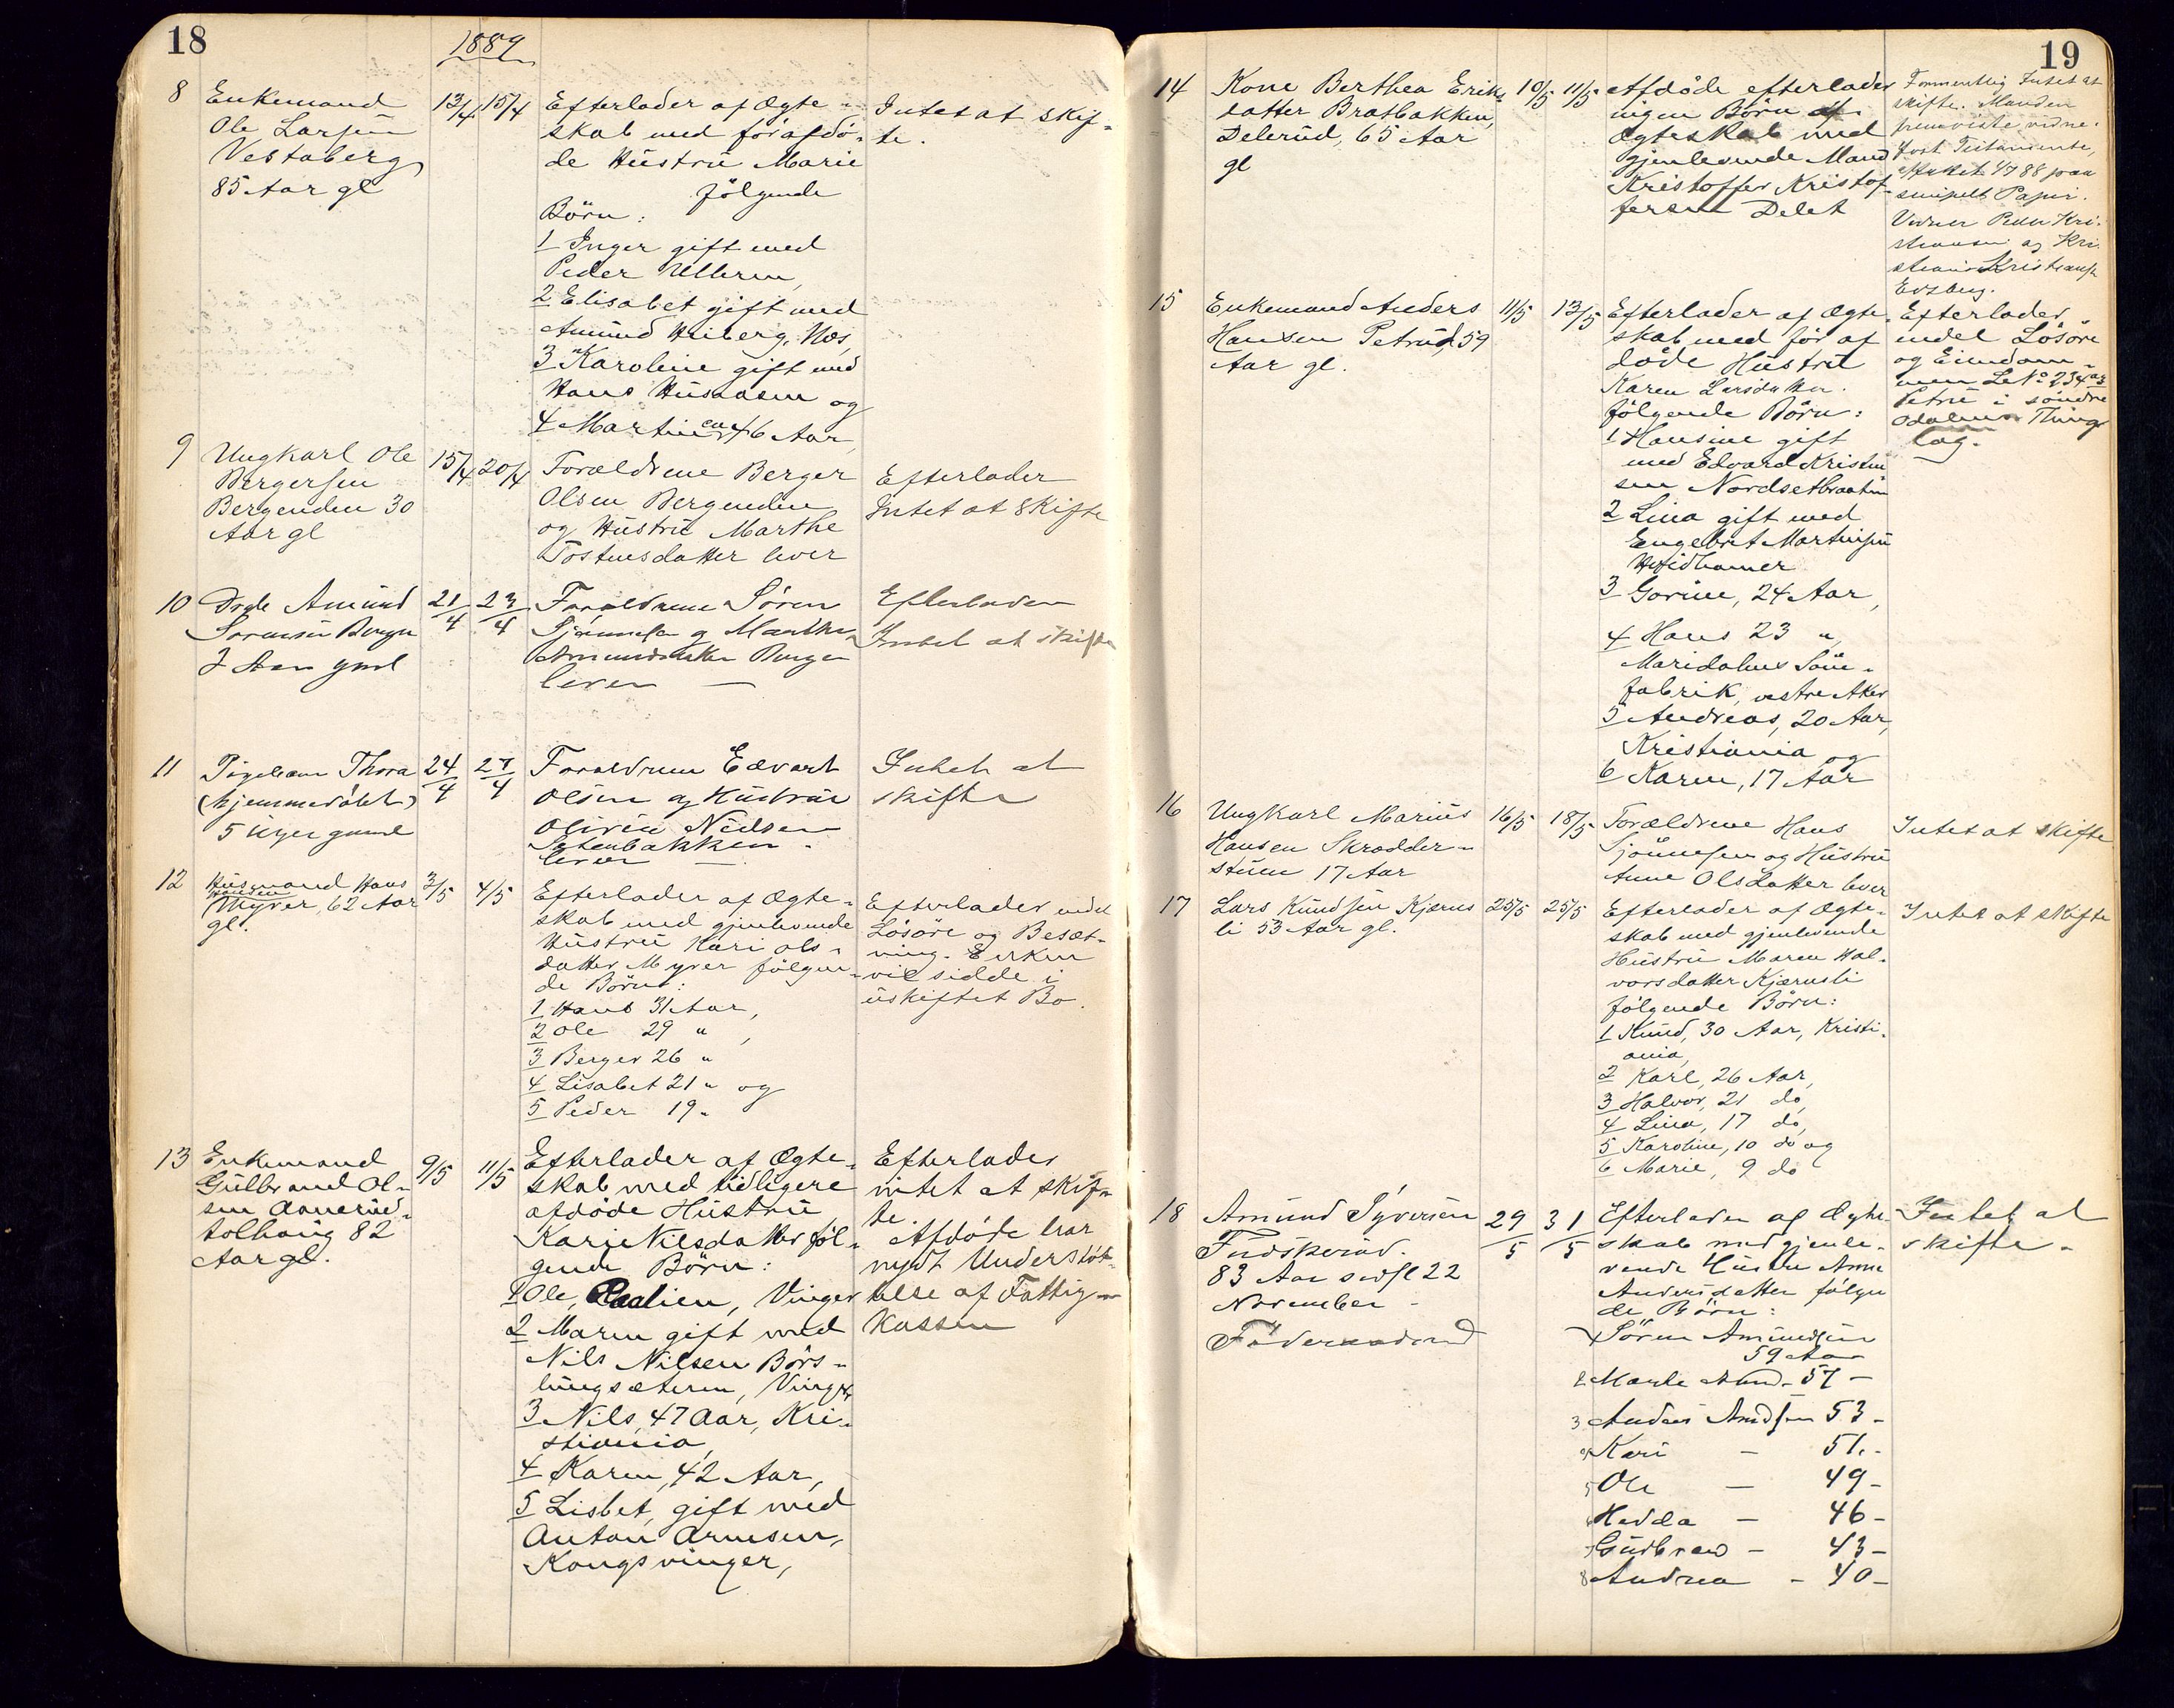 18
1889
8
Enkemand
Ole Larsen
Vestaberg
85 Aar gl
13/4
15/4
Efterlader af Ægte-
skab med forafdö-
de Hüstrü Marie
følgende
Börn:
1 Inger gift med
Peder Ulleren,
2 Elisabet gift med
Amünd Hüberg, Næs,
3 Karoline gift med
Hans Hüsaasen og
4 Martin ca 46 Aar
Intet at skif-
te.
9
Ungkarl Ole
Bergersen
Bergenden 30
Aar gl
15/4
20/4
Forældrene Berger
Olsen Bergenden
og Hüstrü Marthe
Tostensdatter lever
Efterlader
Intet at Skifte
10
Dreng Amünd
Sørensen Berger
2 Aar gml
21/4
23/4
Forældrene Søren
og Marthe
Amundsdatter Berger
lever —
Efterlader
Intet at skifte
11
Pigebarn Thora
(hjemmedöbt)
5 üger gaml
24/4
27/4
Forældrene Edvart
Olsen og Hüstrüe
Olivia Nilsen
Sætenbakken
lever —
Intet at
skifte
12
Hüsmand Hans
Hansen
Myrer, 62 Aar
gl.
3/5
4/5
Efterlader af Ægte-
skab med gjenlevende
Hüstrü Kari Ols-
datter Myrer følgen-
de Börn:
1 Hans 31 Aar,
2 Ole 29 " ,
3 Berger 26 "
4 Lisabet 21 " og
5 Peder 19 "
Efterlader endel
Lösöre og Besæt-
ning. Enken
vil sidde i
üskiftet Bo.
13
Enkemand
Gülbrand Ol-
sen Aanerüd-
tolhaüg 82
Aar gl.
9/5
11/5
Efterlader af Ægte-
skab med tidligere
afdöde Hüstrü
Kari Nilsdatter föl-
gende Börn:
1 Ole, Vinger
2 Maren gift med
Nils Nilsen Börs-
lüngsæteren, Vinger
3 Nils, 47 Aar, Kri-
stiania,
4 Karen, 42 Aar,
5 Lisbet, gift med
Anton Arnesen,
Kongsvinger,
Efterlader
intet at skif-
te.
Afdöde har
nydt Understöt-
telse af Fattig-
kassen
19
14
Kone Berthea Eriks
datter Bratbakken,
Delerüd, 65 Aar
gl
10/5
11/5
Afdöde efterlader
ingen Börn af
Ægteskab med
gjenlevende Mand
Kristoffer Kristof-
fersen Delet
Formentlig Intet at
skifte. Manden
fremviste vidne-
fast Testamente,
88 paa
simpelt Papir.
Vidner Peder Kri-
stiansen og Kri-
stian Kristiansen
Evsberg.
15
Enkemand Anders
Hansen Petrüd, 59
Aar gl.
11/5
13/5
Efterlader af Ægte-
skab med før af
döde Hüstrü
Karen Larsdatter
følgende Börn:
1 Hansine gift
med Edvard Kristen
sen Nordsetbraaten
2 Lina gift med
Engebret Martinsen
Hvidhamer
3 Gorine, 24 Aar,
4 Hans 23 "
Maridalens
fabrik, vestre Aker
5 Andreas, 20 Aar,
Kristiania og
6 Karen, 17 Aar
Efterlader
endel Lösöre
og Eiendom-
men L. No 234
Petrü i söndre
Odalens Thing
lag.
16
Ungkarl Mariüs
Hansen Skrædder-
stüen 17 Aar
16/5
18/5
Forældrene Hans
Sjönnesen og Hüstrü
Anne Olsdatter lever
Intet at skifte
17
Lars Knüdsen Kjærns
li 53 Aar gl.
25/5
25/5
Efterlader af Ægte-
skab med gjenlevende
Hüstrü Maren Hal-
vorsdatter Kjærnsli
følgende Börn:
1 Knüd, 30 Aar, Kristi-
ania,
2 Karl, 26 Aar,
3 Halvor, 21 do,
4 Lina, 17 do,
5 Karoline, 10 do og
6 Marie, 9 do
Intet at skifte
18
Amünd Syversen
83 Aar 22
November -
Föderaadsmand
29/5
31/5
Efterlader af Ægte-
skab med gjenle-
vende Hüstrü Anne
Andersdatter følgen
de Börn:
1 Sören Amündsen
59 Aar
2 Marte Amd- 57 -
3 Anders Amdsen 53 -
4 Kari - 51 -
5 Ole - 49 -
6 Hedda - 46 -
7 Gudbrand - 43 -
8 Andrea - 40 -
Intet at
skifte -